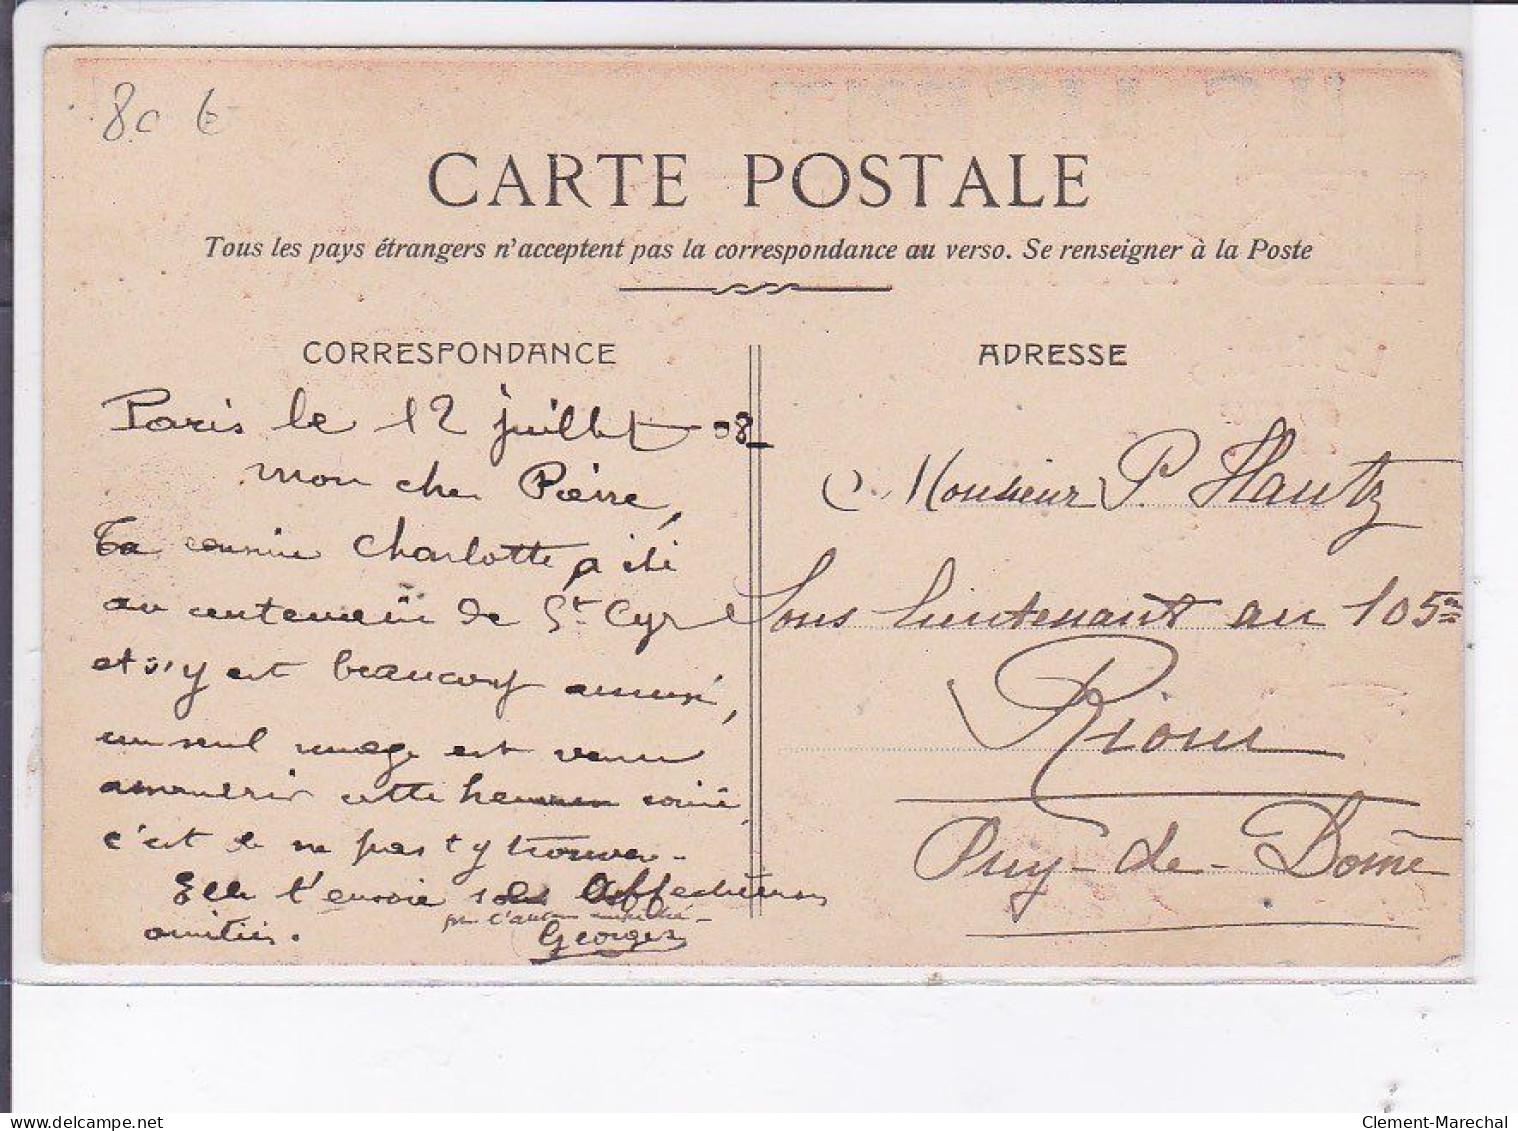 80 €
CARTE POSTALE
Tous les pays étrangers n'acceptent pas la correspondance au verso. Se renseigner à la Poste
CORRESPONDANCE
Paris le 12 juillet 08
mon cher Pierre,
Ta cousine Charlotte a été
au centenaire de St Cyr
et s'y est beaucoup amusé,
un seul nuage est venu
assombrir cette heureuse soirée,
c'est de ne pas t'y trouver.
Elle t'envoie ses affectueuses
amitiés.
Georges
ADRESSE
Monsieur P. Hautz
Sous lieutenant au 105me
Riom
Puy-de-Dome
Clement-Marechal
www.delcampe.net